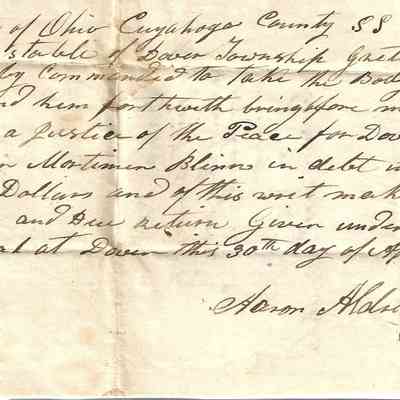 of Ohio Cuyahoga County SS
stable of Dover Township Greet
by Commended to take the Bod
nd him forthweth bringfore m
a Justice of the Peace for Dov
n Mortimer Blinn in debt
Dollars and of this writ mak
and Due return Given under
al at Dover this 30th day of Ap
Aaron Aldri